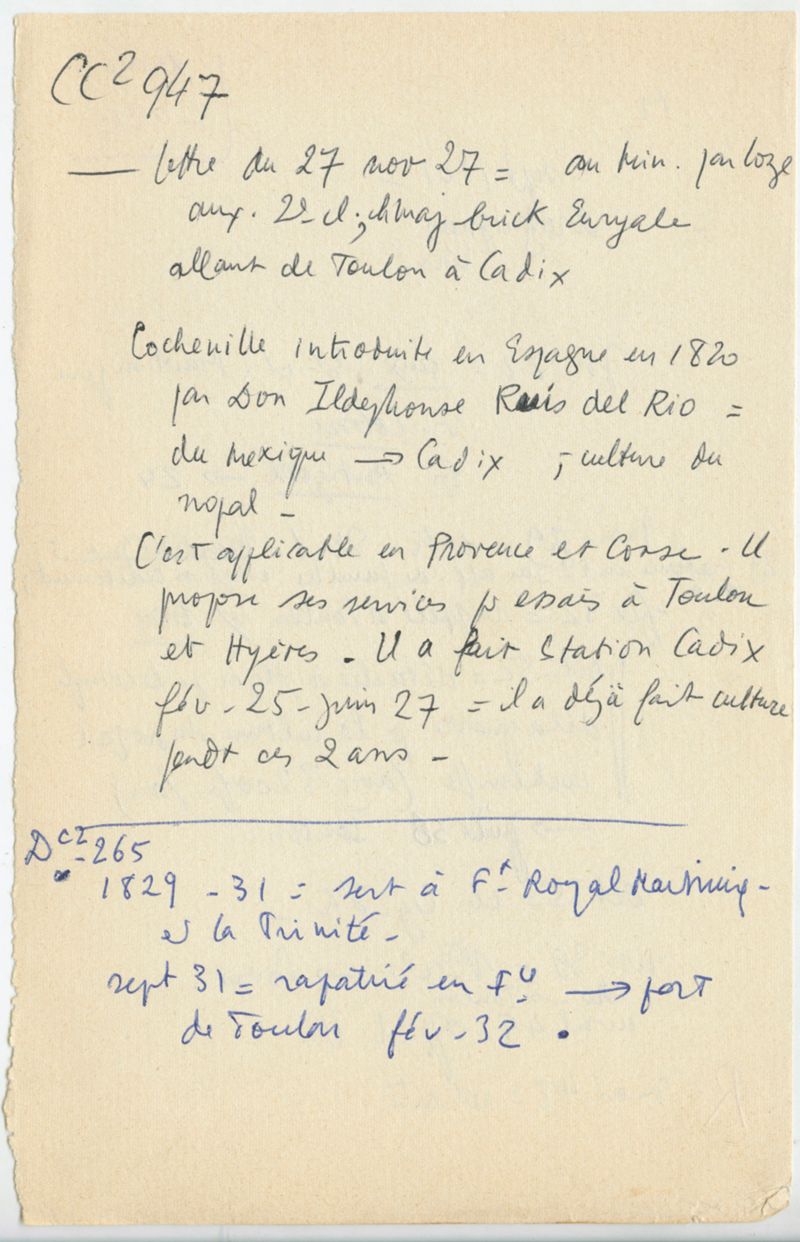 CC2 947
— lettre du 27 nov 27 = au Min. par Loze
aux. 2e cl., ch maj brick Euryale
allant de Toulon à Cadix
Cochenille introduite en Espagne en 1820
par Don Ildephonse Ruis del Rio =
du Mexique → Cadix ; culture du
nopal -
C'est applicable en Provence et Corse. Il
propose ses services pr essais à Toulon
et Hyères. Il a fait Station Cadix
fév - 25 - juin 27 = il a déjà fait culture
pendt ces 2 ans -
DC2 - 265
1829 - 31 = sert à Ft Royal Martiniq -
et la Trinité -
sept 31 = rapatrié en Fce → port
de Toulon fév - 32.